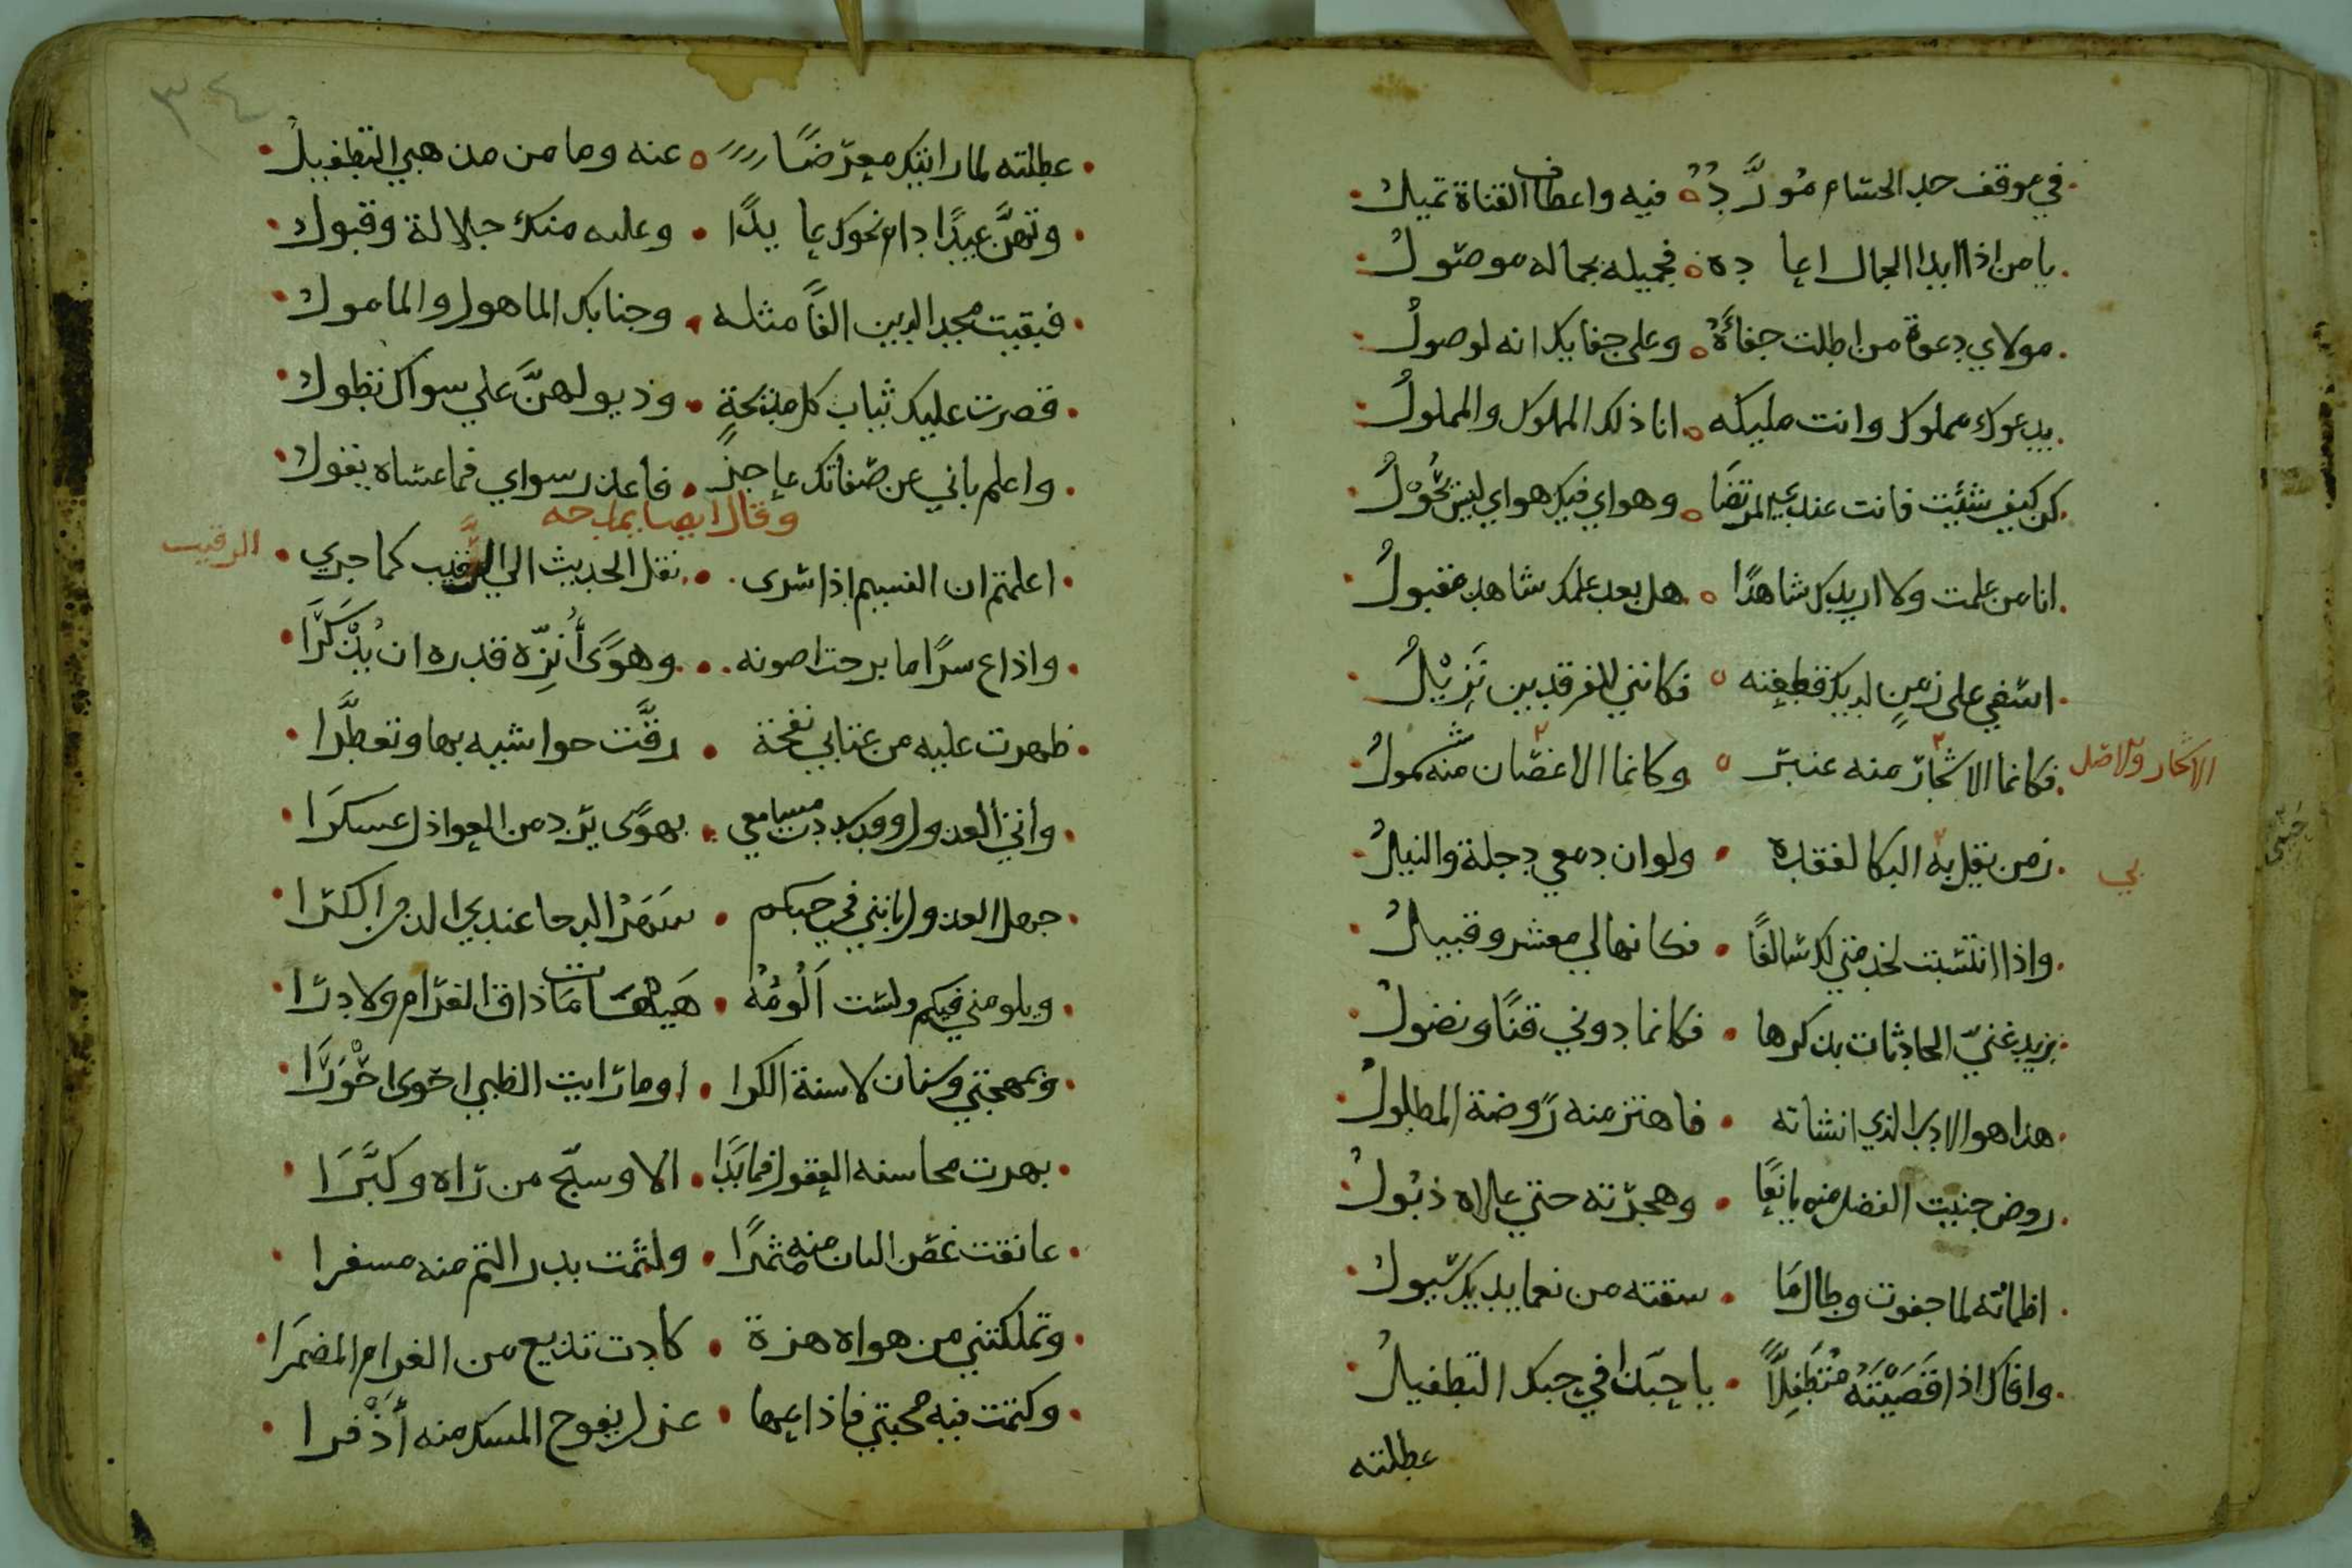 في موقف خد الحسام مُورَّدُ فيه واعطاف القناة تميل
يا من اذا ابدا الجمال اعاده فجميله بجماله موصول
مولاي دعوة من اطلت جفاءَهُ وعلى جفايك انه لوصول
يدعوك مملوك وانت مليكه انا ذلك المملوك والمملول
كن كيف شئت فانت عندي المرتضا وهواي فيك هواي ليس يُحوّل
انا من علمت ولا اريدك شاهدًا هل بعد علمك شاهد مقبول
اسفي على زمنٍ لديك قطعته فكانني للفرقدين نزيل
فكانما الاشجار منه عنبر وكانما الاغصان منه شمول
الاسحار ولاصل
زمن يقل به البكا لفقده ولو ان دمعي دجلة والنيل
بي
واذا انتسبت لخدمتي لك سالفًا فكانها لي معشر وقبيل
يزيد عني الحادثات بذكرها فكانما دوني قنًا ونصول
هذا هو الادب الذي انشاته فاهتز منه روضة المطلول
روض جنيت الفضل منه يانعًا وهجرته حتي علاه ذبول
اظماته لما جفوت وطالما سقته من نعما يديك سيول
وافاك اذ اقصيته متطفلاً يا حبذا في حبك التطفيل
عطلته
٣٤
عطلته لما رايتك معرضًا عنه وما من مذهبي التطفيل
وتهنَّ عيدًا دام نحوك عايدًا وعليه منك جلالة وقبول
فبقيت مجد الدين الفًا مثله وجنابك الماهول والمامول
قصرت عليك ثياب كل مديحةٍ وذيولهنَّ علي سواك تطول
واعلم باني عن صفاتك عاجز فاعذر سواي فما عساه يقول
وقال ايضا يمدحه
اعلمتم ان النسيم اذا سرى نقل الحديث الي الرقيب كما جري
الرقيب
واذاع سرًا ما برحت اصونه وهوًى أُنزّه قدره ان يُذكَرَا
ظهرت عليه من عتابي نفحة رقَّت حواشيه بها وتعطَّرا
وأتي العذول وقد سددت مسامعي بهوًى يرد من العواذل عسكرَا
جهل العذول بانني في حبكم سهرُ الدجا عندي الذ من الكرا
ويلومني فيكم ولست أَلُومُهُ هَيهات ما ذاق الغرام ولا درا
وبمهجتي وسنان لا سنة الكرا اوما رايت الظبي احوى احورَا
بهرت محاسنه العقول فما بَدَا الا وسبّح من رآه وكبَّرَا
عانقت غصن البان منه مثمرًا ولثمت بدر التم منه مسفرا
وتملكتني من هواه هزة كادت تذيع من الغرام المضمَرَا
وكتمت فيه محبتي فاذاعها غزل يفوح المسك منه أذْفرا